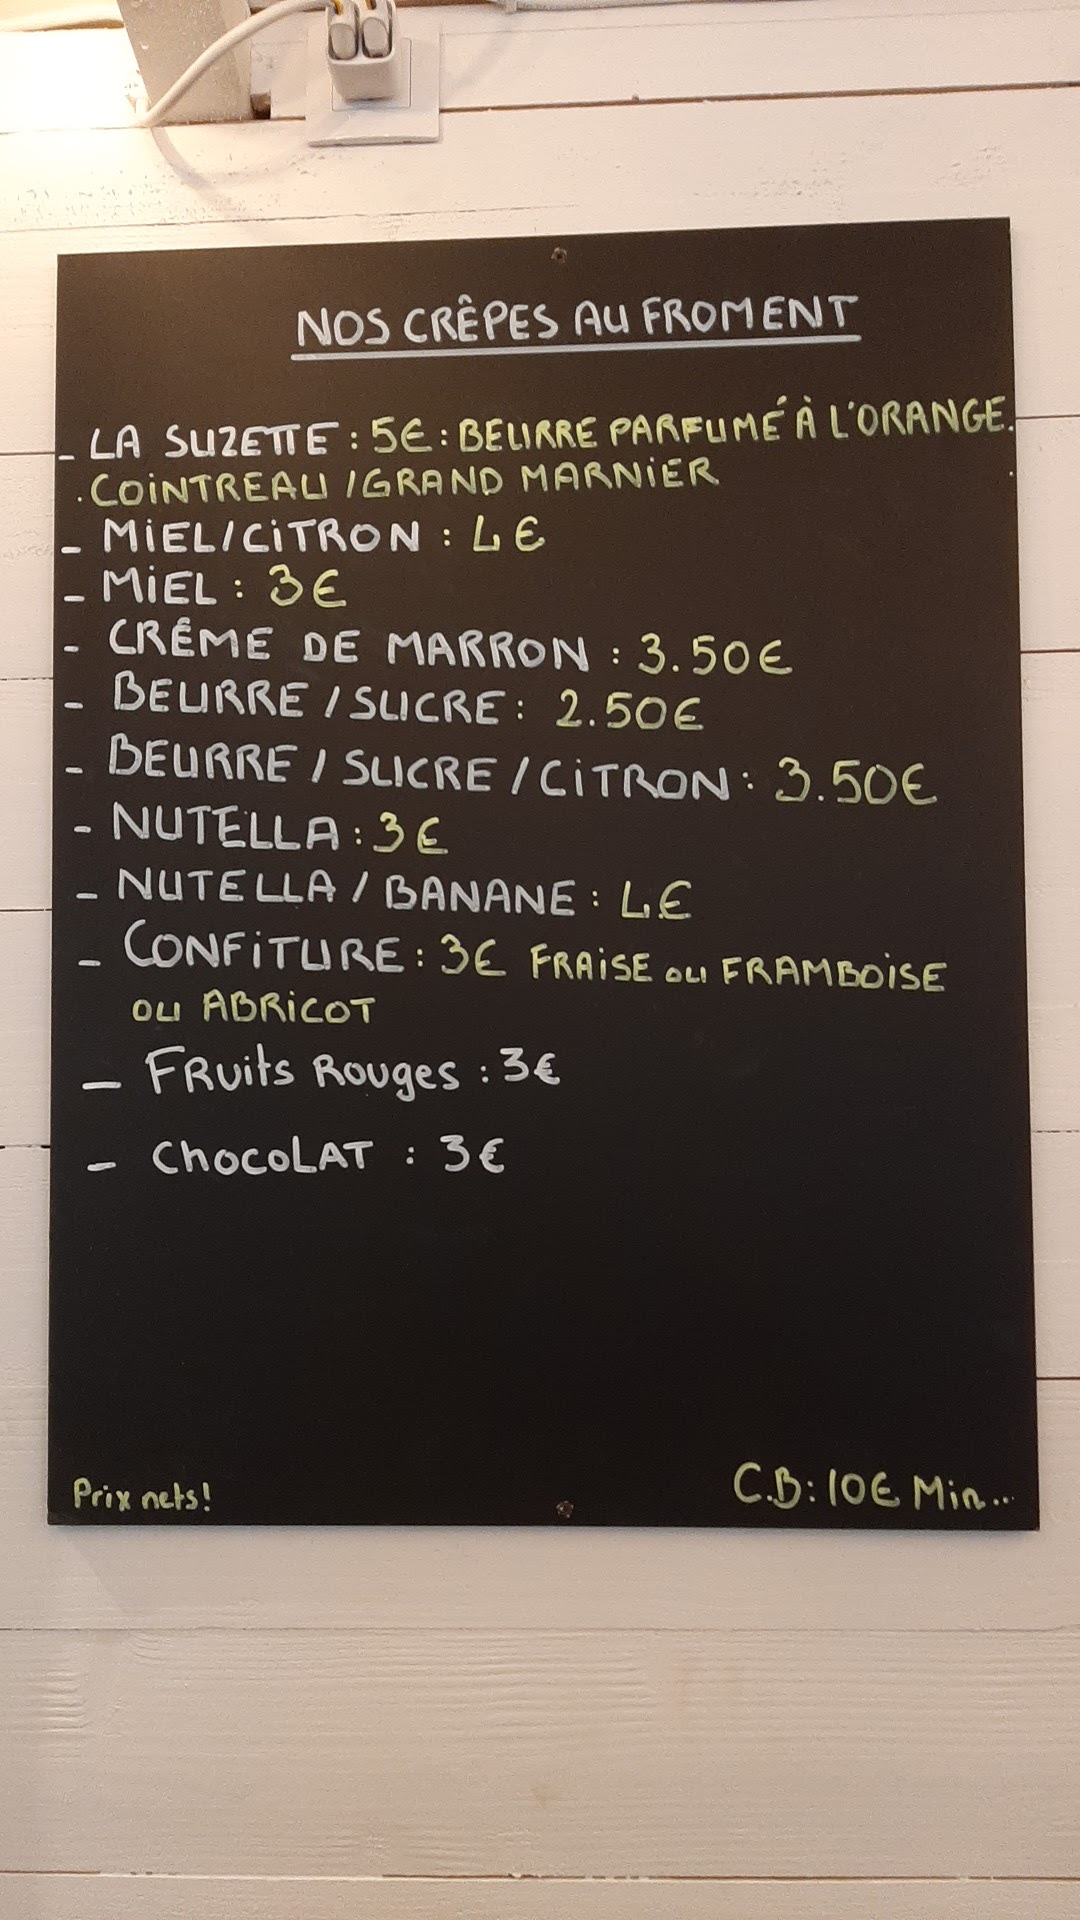 NOS CRÊPES AU FROMENT
- LA SUZETTE : 5€ : BEURRE PARFUMÉ À L'ORANGE.
. COINTREAU / GRAND MARNIER
- MIEL/CITRON : 4€
- MIEL : 3€
- CRÊME DE MARRON : 3.50€
- BEURRE / SUCRE : 2.50€
- BEURRE / SUCRE / CITRON : 3.50€
- NUTELLA : 3€
- NUTELLA / BANANE : 4€
- CONFITURE : 3€ FRAISE OU FRAMBOISE
OU ABRICOT
- FRuits Rouges : 3€
- ChocoLAT : 3€
Prix nets!
C.B : 10€ Min...